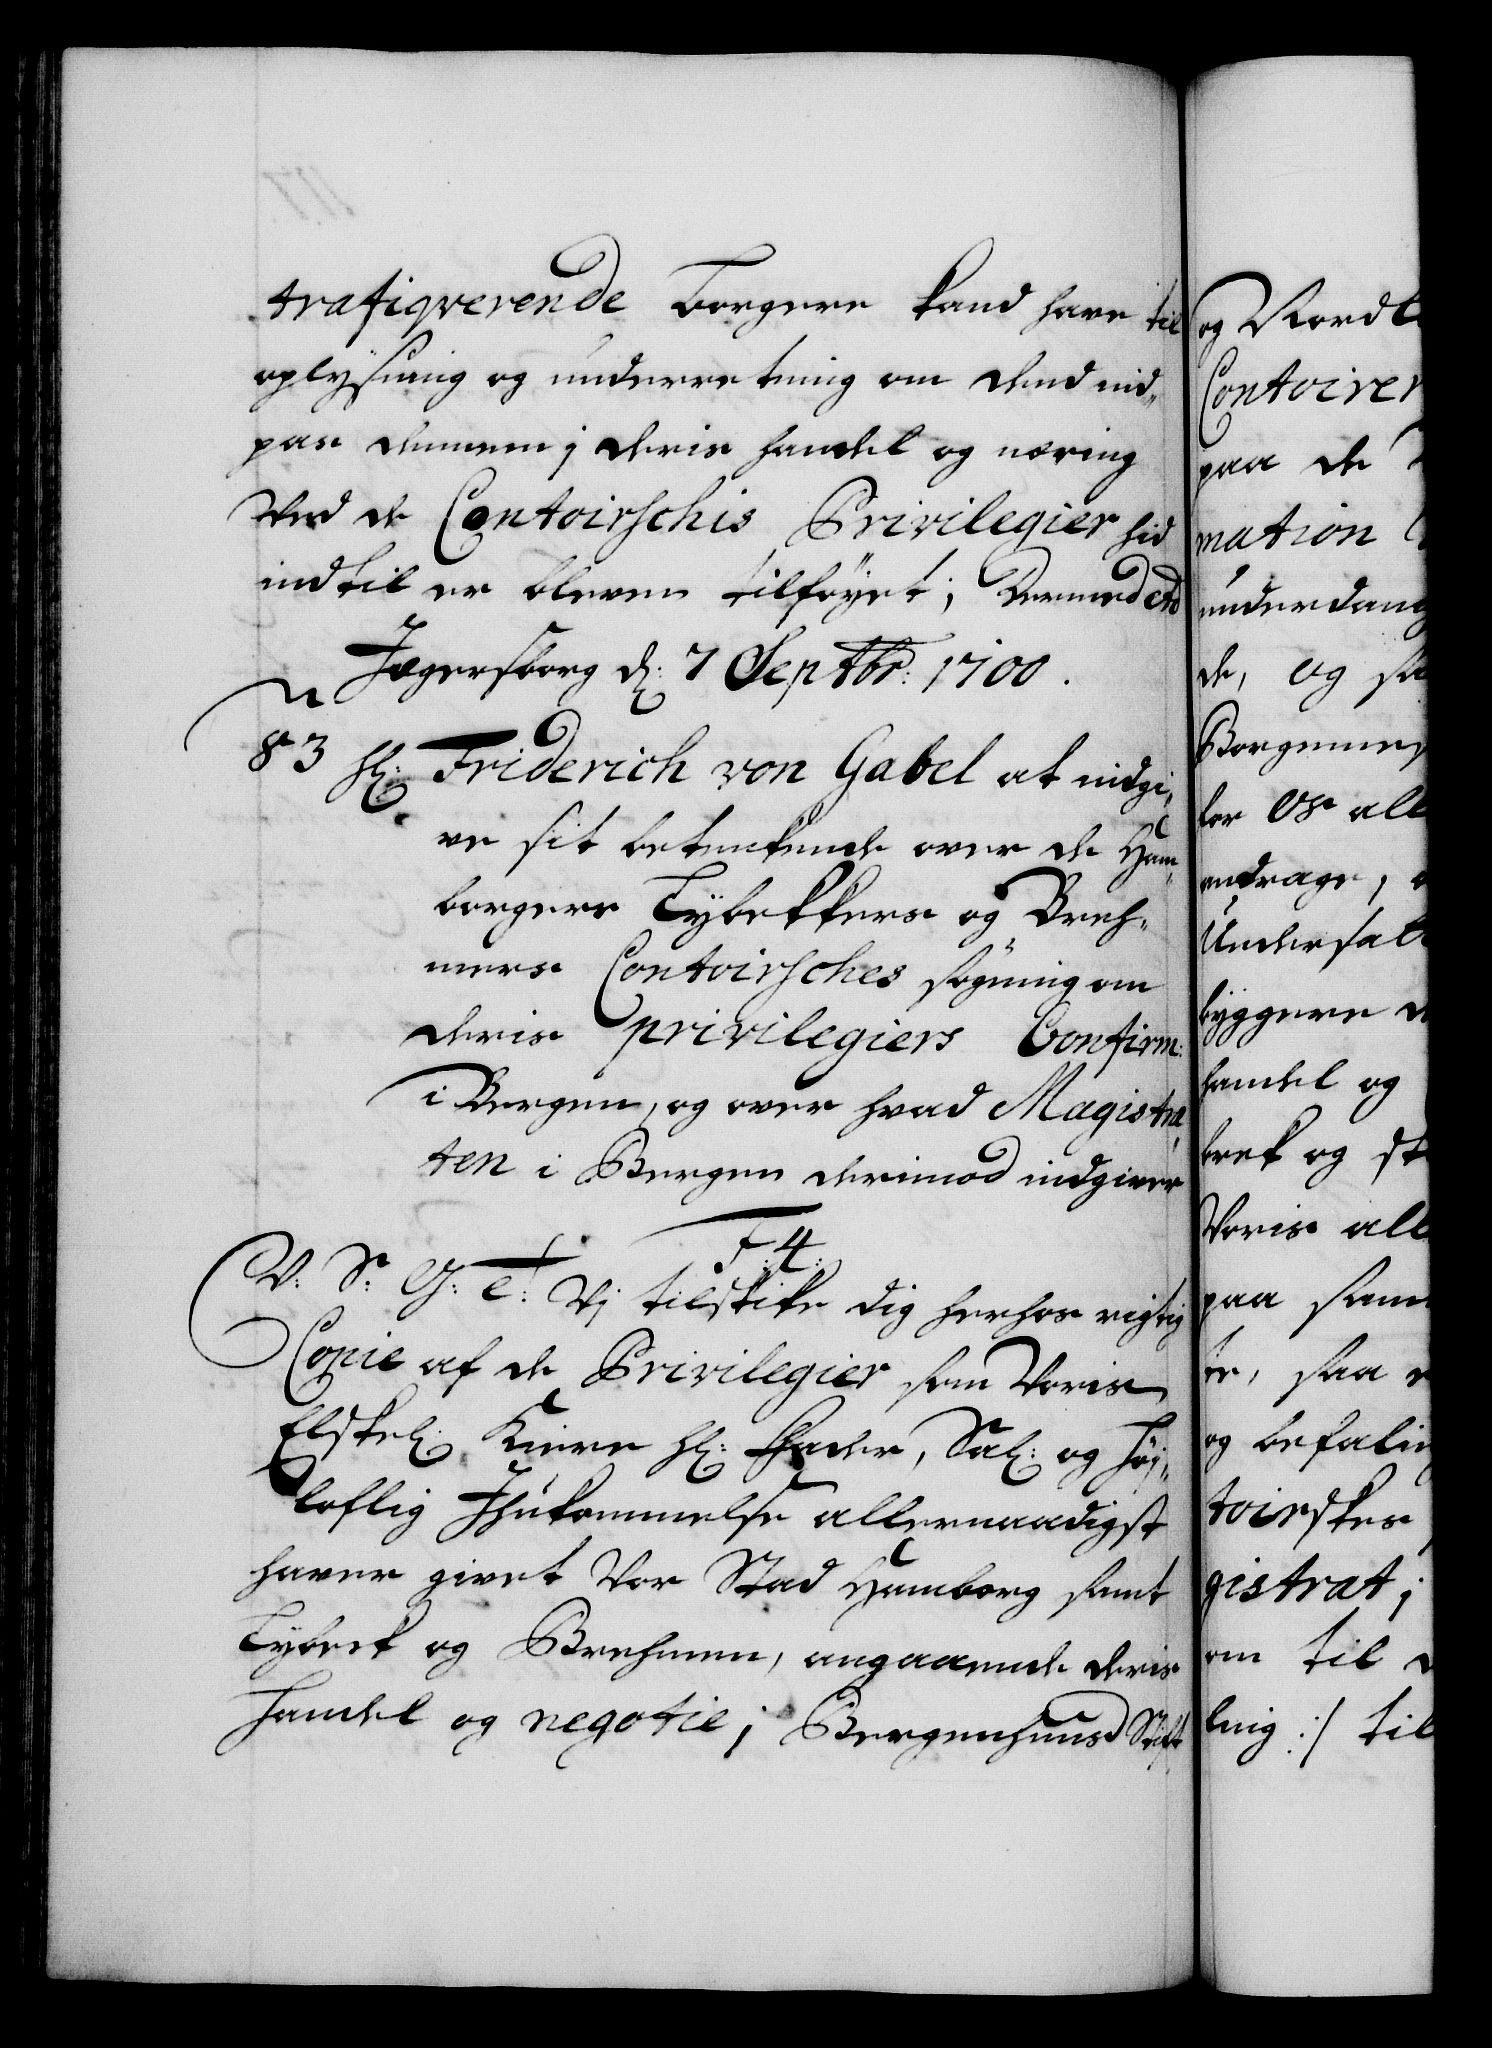 trafiqverende borgere kand have til
oplysning og underretning om dend ind„
pas dennem j deris handel og næring
Ved de Contoirschis Privilegier hid
indtil er bleven tilføyet; Dermed etc
Jægersborg d: 7 Septbr: 1700.
83 H: Friderich von Gabel at indgi„
ve sit betenkende over de Ham„
borgers Lybekkers og Breh„
mers Contoirsches søgning om
deris privilegiers Confirm:
i Bergen, og over hvad Magistra„
ten i Bergen derimod indgiver
F: 4:
V: S: G: T: Vj tilskike dig herhos rigtig
Copie af de Privilegier som Voris
Elskel: Kiere H: Fader, Sal: og Høj„
loflig Ihukommelse allernaadigst
haver givet Vor Stad Hamborg samt
Lybeck og Brehmen, angaaende deris
Handel og negotie j Bergenhuus Stift
og Nordl
Contoirer
paa de
mation
underdanig
de, og sa
Borgemes
for os all
andrage,
Undersaat
byggere
handel og
brek og st
Voris all
paa sam
te, saa
og befalin
toirskes
gistrat j
om til
ling :/ til